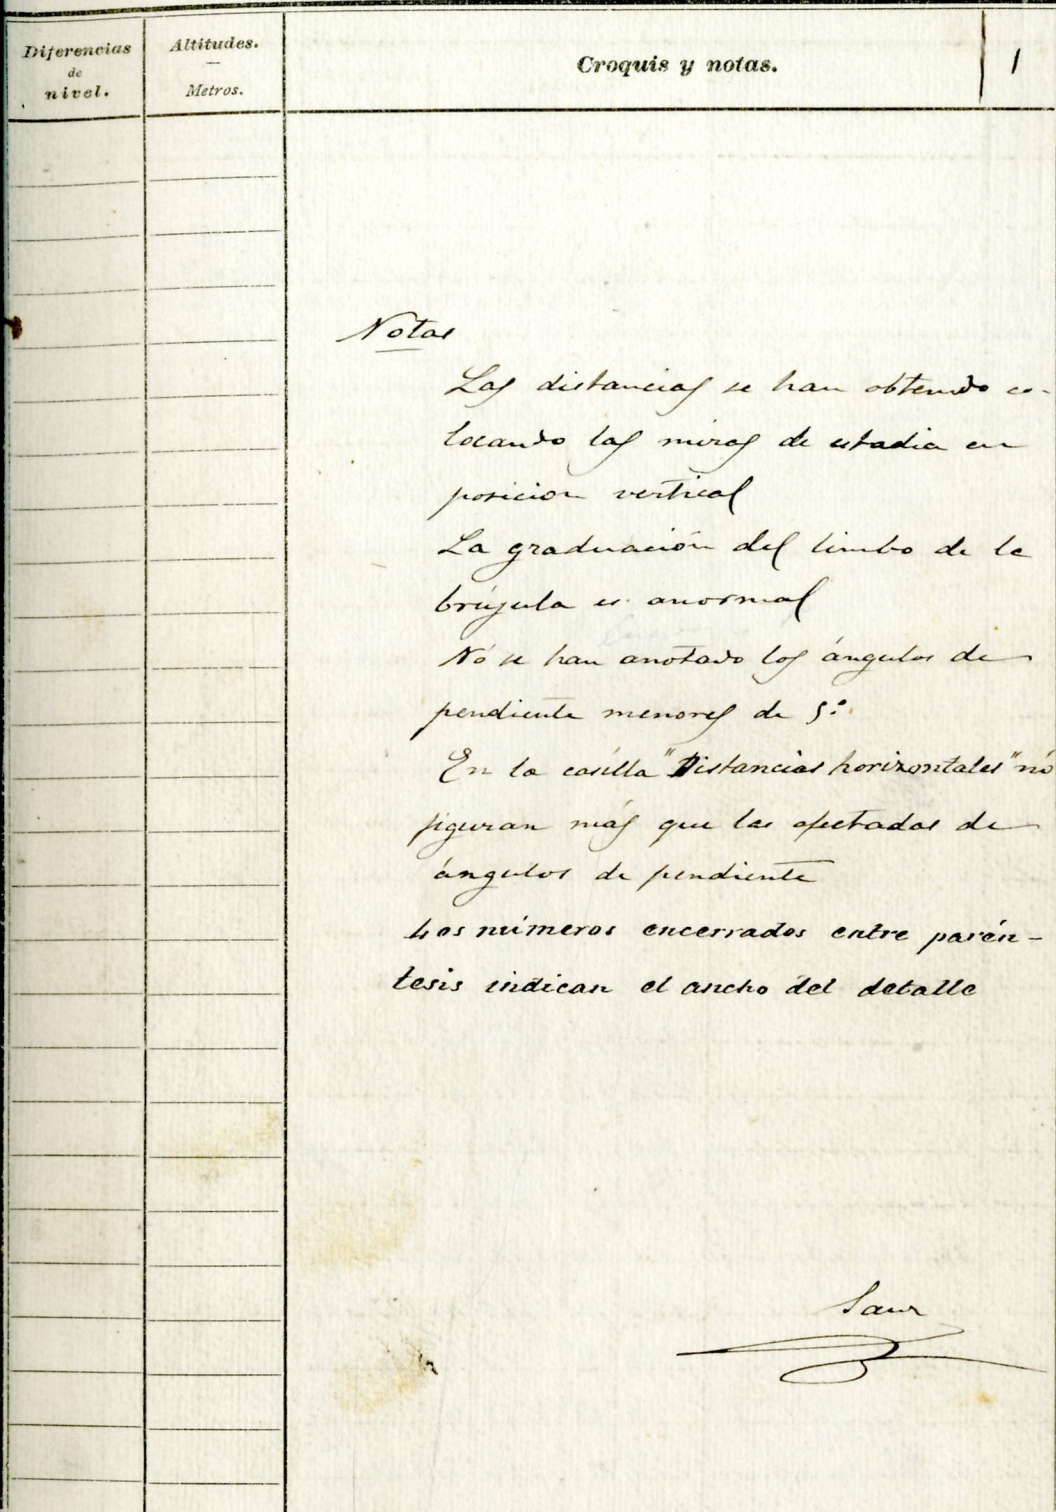 Diferencias
de
nivel.
Altitudes.
Metros.
Croquis y notas.
1
Notas
Las distancias se han obtenido co-
locando las miras de estadia en
posicion vertical
La graduación del limbo de la
brújula es anormal
Nó se han anotado los ángulos de
pendiente menores de 5º
En la casilla "Distancias horizontales" nó
figuran más que las afectadas de
ángulos de pendiente
Los números encerrados entre parén-
tesis indican el ancho del detalle